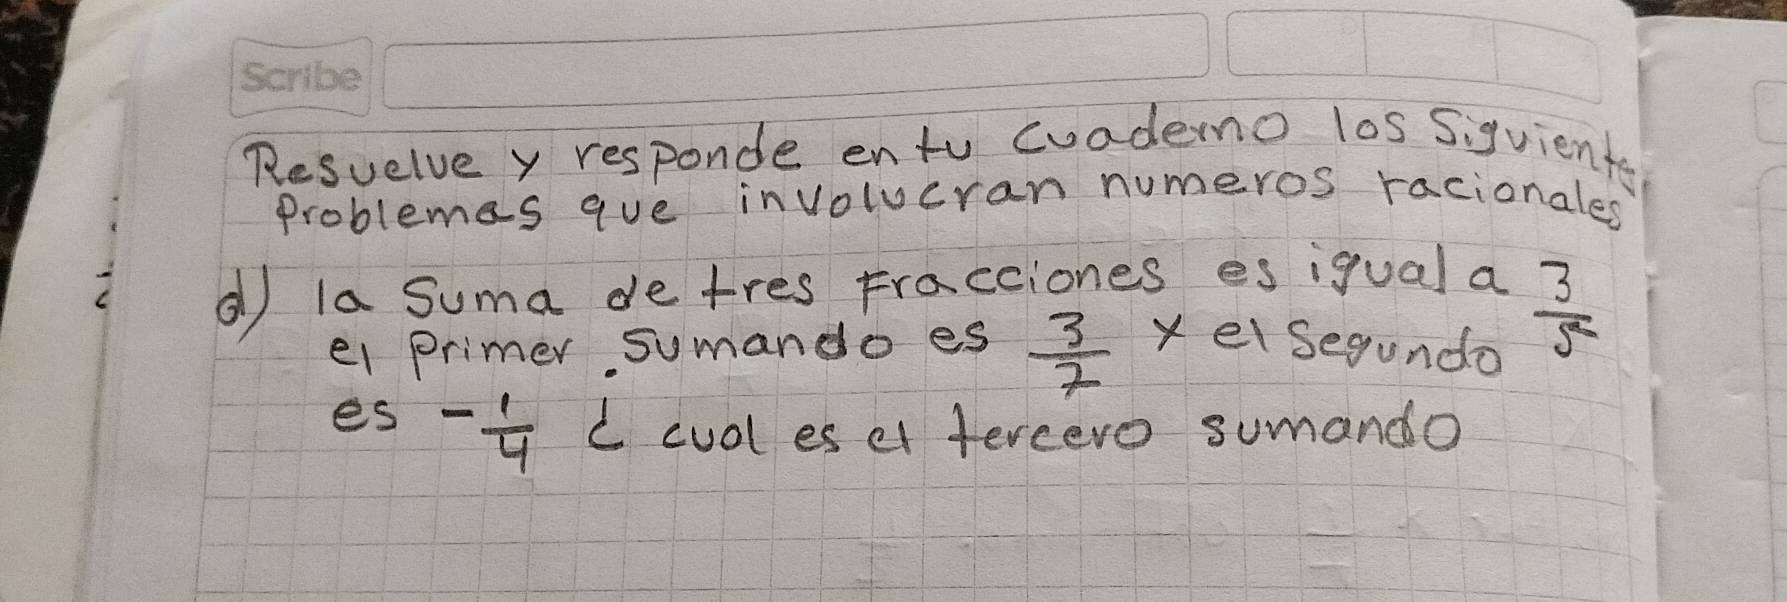 Scribe
Resuelve y responde en tu cuaderno los Siguientes
Problemas que involucran numeros racionales
d) la Suma de tres Fracciones es igual a 3/5
el Primer Sumando es 3/7 y el Segundo
es -1/4 ¿ cual es el tercero sumando